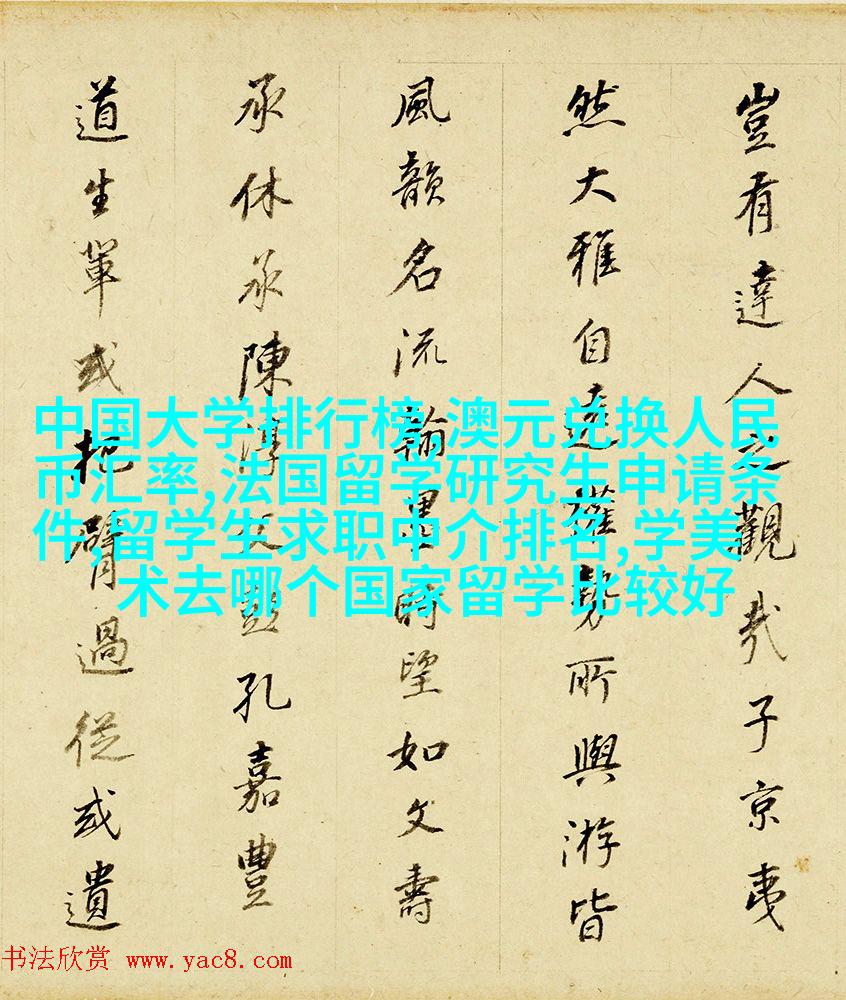 豈有達人之觀哉子京夷
然大雅自遠權勢所與游皆
風韻名流翰墨時望如文壽
承休承陳淳父彭孔嘉豐
道生輩或把臂過從或遺
中国大学排行榜,澳元兑换人民
币汇率,法国留学研究生申请条
件,留学生求职中介排名,学美
术去哪个国家留学比较好
书法欣赏 www.yac8.com